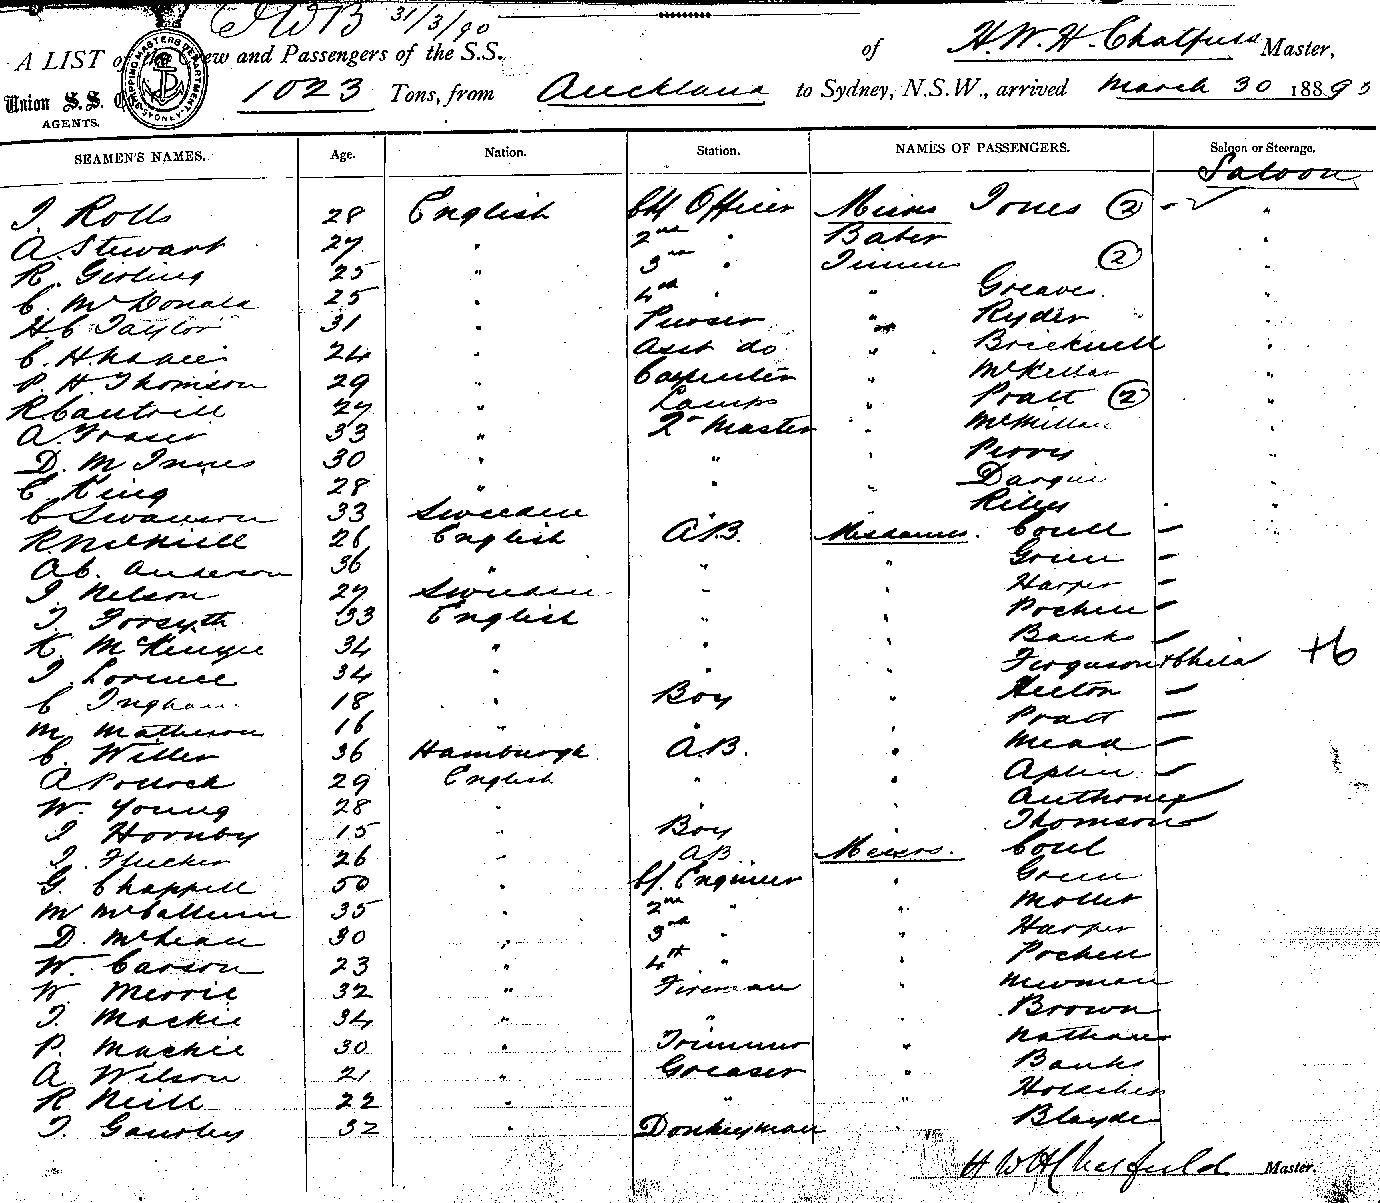 JWB 31/3/90
A LIST of the Crew and Passengers of the S.S. of H. W. H. Chatfield Master,
Union S.S. Co. 1023 Tons, from Auckland to Sydney, N.S.W., arrived March 30 1889 90
AGENTS.
SEAMEN'S NAMES. Age. Nation. Station. NAMES OF PASSENGERS. Saloon or Steerage.
Saloon
J. Rolls 28 English Chf Officer Misses Jones (2) - ✓ "
A. Stewart 27 " 2nd " Baber "
R. Girling 25 " 3rd " (2) "
C. McDonald 25 " 4th " " Greaves "
H C Taylor 31 " Purser " Ryder "
C. 24 " Asst do " Bricknell "
P. H. Thomson 29 " Carpenter " McKellar "
R Cantrill 27 " Lamps " Pratt (2) "
A. Fraser 33 " 2r Master " McMillan "
D. M Innes 30 " " " Perry "
C. King 28 " " " Dargue "
C Swanson 33 Sweden Riley "
R McNeill 26 English A.B. Mesdames. Coull -
A C. Anderson 36 " " " Green -
J. Nelson 27 Sweden " " Harper -
J. Forsyth 33 English " " Pochen -
K. McKenzie 34 " " " Banks -
J. Lorence 34 " " " Ferguson + Child +6
C Ingham 18 " Boy " Hutton -
M. Matheson 16 " " " Pratt -
C. Willer 36 Hamburgh A.B. " Mead -
A Pollock 29 English " " -
W. Young 28 " " " Anthony -
J Hornby 15 " Boy " Thomson -
J. 26 " AB Messrs. Coul
G. Chappell 50 " Cf. Engineer " Green
M McCallum 35 " 2nd " " Mollet
D. McLean 30 " 3rd " " Harper
W. Carson 23 " 4th " " Pochen
W Merrie 32 " Fireman " Newman
J. Mackie 34 " " " Brown
P. Mackie 30 " Trimmer " Nathan
A Wilson 21 " Greaser " Banks
R Neill 22 " " "
J. Gourley 32 " Donkeyman " Blayde
H W H Chatfield Master.